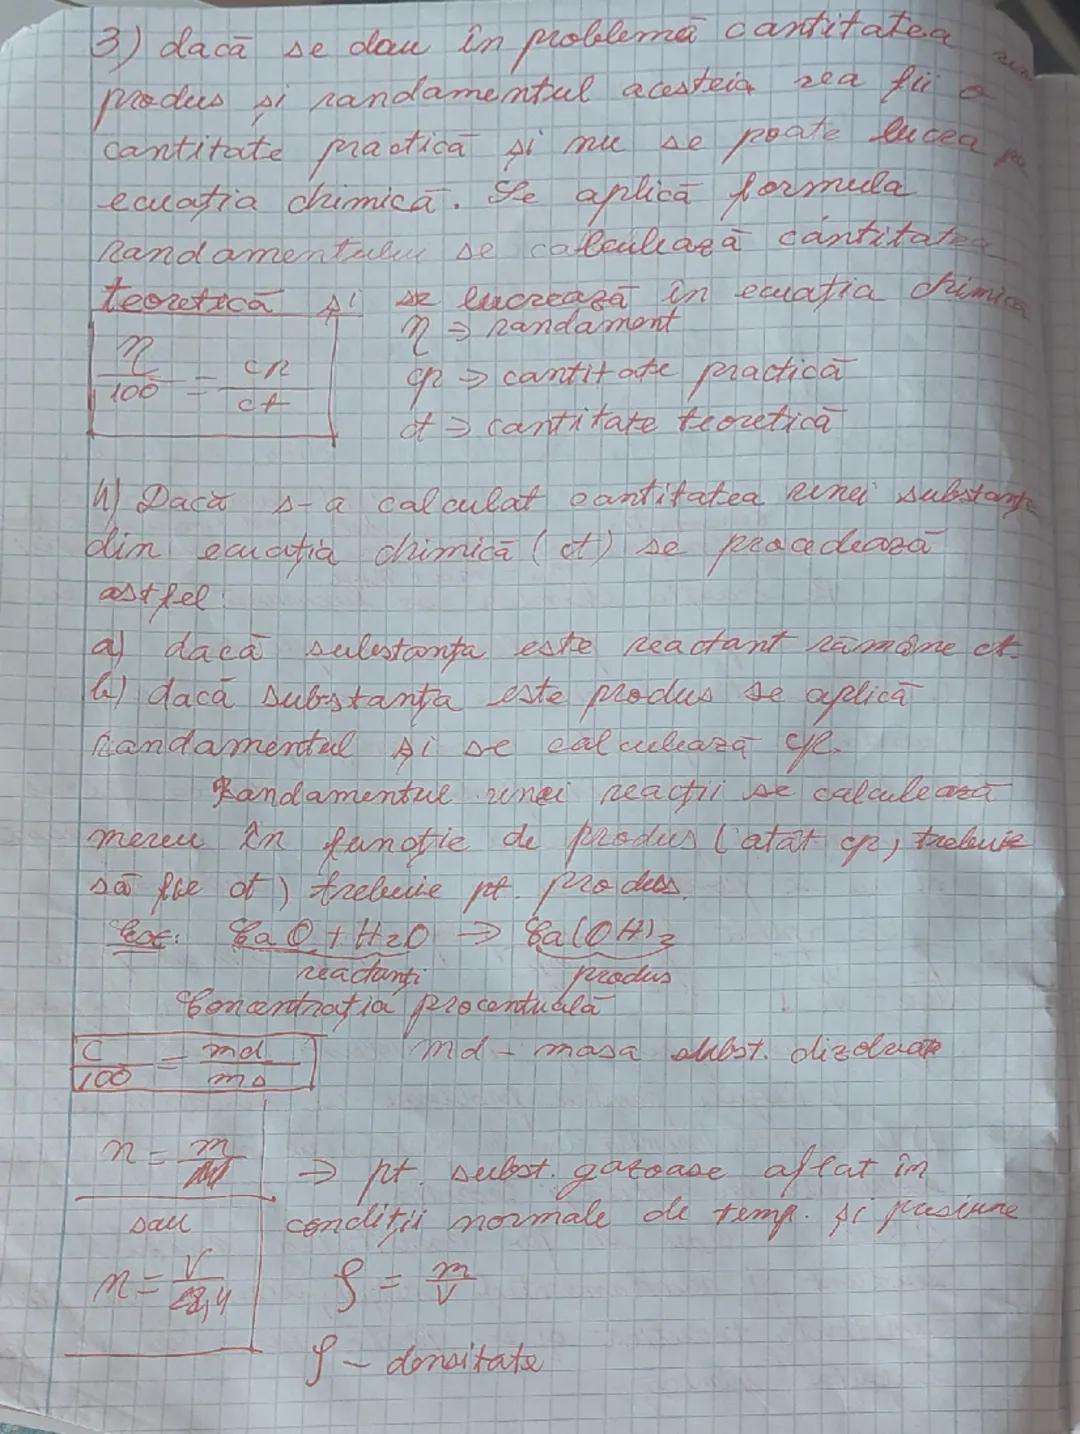 3) dacă se dau în problemă cantitatea
produs și randamentul acesteia va fii o
cantitate practică și nu se poate lucea
ecuația chimică. Se aplică formula
randamentului se calculează cantitatea
teoretică și se lucrează în ecuația chimica
η/100 = cp/ct
η => randament
cp => cantitate practică
ct => cantitate teoretică
4) Dacă s-a calculat cantitatea unei substanțe
din ecuația chimică (ct) se procedează
astfel:
a) dacă substanța este reactant rămâne ct.
b) dacă substanța este produs se aplică
randamentul și se calculează cp.
Randamentul unei reacții se calculează
mereu în funcție de produs (atât cp, trebuie
să fie ct) trebuie pt. produs.
Ex: CaO + H2O → Ca(OH)2
reactanți produs
Concentrația procentuală
C/100 = md/ms md - masa subst. dizolvate
n = m/M => pt. subst. gazoase aflat în
sau condiții normale de temp. și presiune
n = V/22,4 ρ = m/V
ρ - densitate